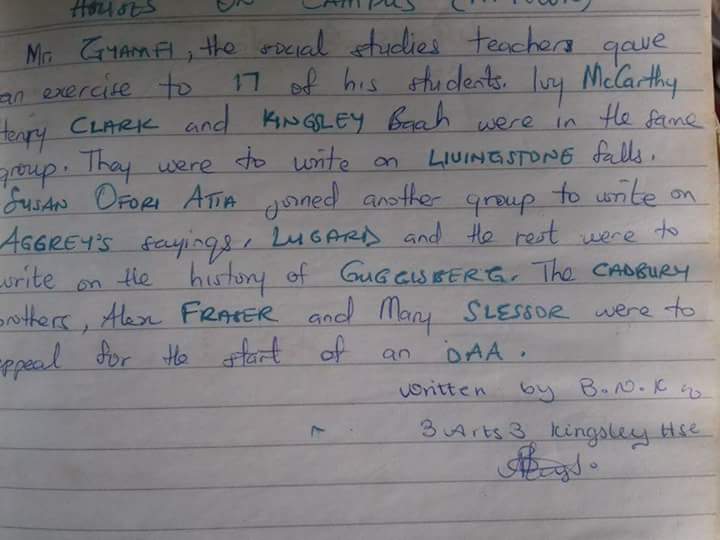 HOUSES ON CAMPUS
Mr. GYAMFI, the social studies teachers gave
an exercise to 17 of his students. Ivy McCarthy
Henry CLARK and KINGSLEY Baah were in the same
group. They were to write on LIVINGSTONE falls.
SUSAN OFORI ATTA joined another group to write on
AGGREY'S sayings, LUGARD and the rest were to
write on the history of GUGGISBERG. The CADBURY
brothers, Alex FRASER and Mary SLESSOR were to
appeal for the start of an OAA.
written by B.N.K
3 Arts 3 Kingsley Hse